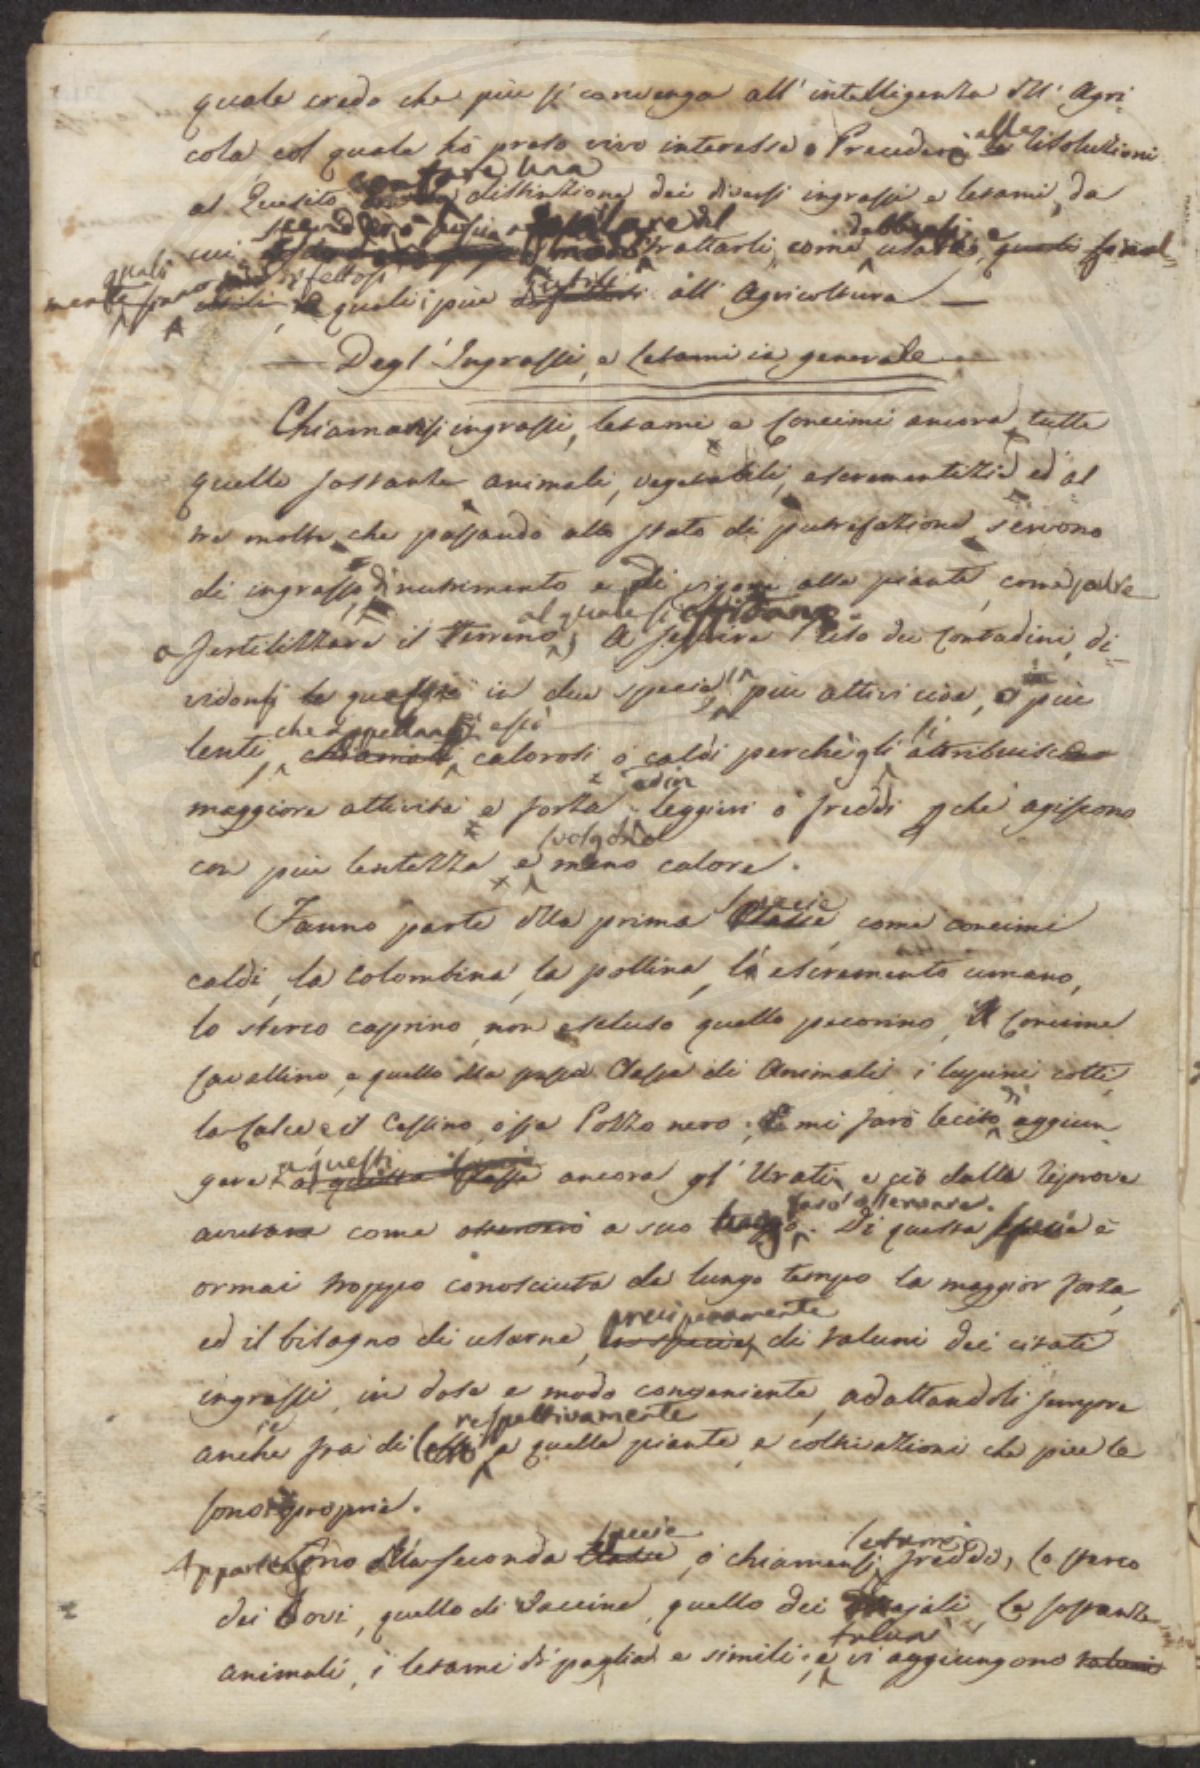 quale credo che più si convenga all' intelligenza dell' Agri-
cola col quale hò preso vivo interesse. Precederà alle risoluzioni
al Quesito una distinzione dei diversi ingrassi e letami, da
cui trattarli, come usarli, final-
mente quali sono difettosi, quali i più utili all' Agricoltura —
— Degl' Ingrassi, e Letami in generale —
Chiamansi ingrassi, letami e Concimi ancora tutte
quelle sostanze animali, vegetabili, escrementizie ed al
tre molte che passando allo stato di putrefazione, servono
di ingrasso, di nutrimento e di vigore alle piante, come pure
a fertilizzare il Terreno al quale si affidano. A seguire l' uso dei Contadini, di-
vidonsi in due specie, in più attivi cioè, o più
lenti, che appellansi essi calorosi o caldi perchè gli si attribuisce
maggiore attività e forza ed in leggieri o freddi perchè agiscono
con più lentezza e svolgono meno calore.
Fanno parte della prima specie come concimi
caldi, la colombina, la pollina, lo escremento umano,
lo sterco caprino, non escluso quello pecorino, il Concime
Cavallino, e quello della stessa Classe di Animali, i lupini cotti
la Calce e il Cessino, ossia Pozzo nero. E mi farò lecito di aggiun
gere a questi ancora gl' Urati, e ciò dalle riprove
avutane come a suo luogo farò osservare. Di questa specie è
ormai troppo conosciuta da lungo tempo la maggior forza,
ed il bisogno di usarne, precipuamente di taluni dei citati
ingrassi, in dose e modo conveniente, adattandoli sempre
anche fra di essi respettivamente a quelle piante, e coltivazioni che più le
sono proprie.
Appartengono alla seconda specie, o chiamansi letami freddi, lo sterco
dei Bovi, quello di Vaccine, quello dei Majali, le sostanze
animali, i letami di paglia e simili, e vi aggiungono taluni